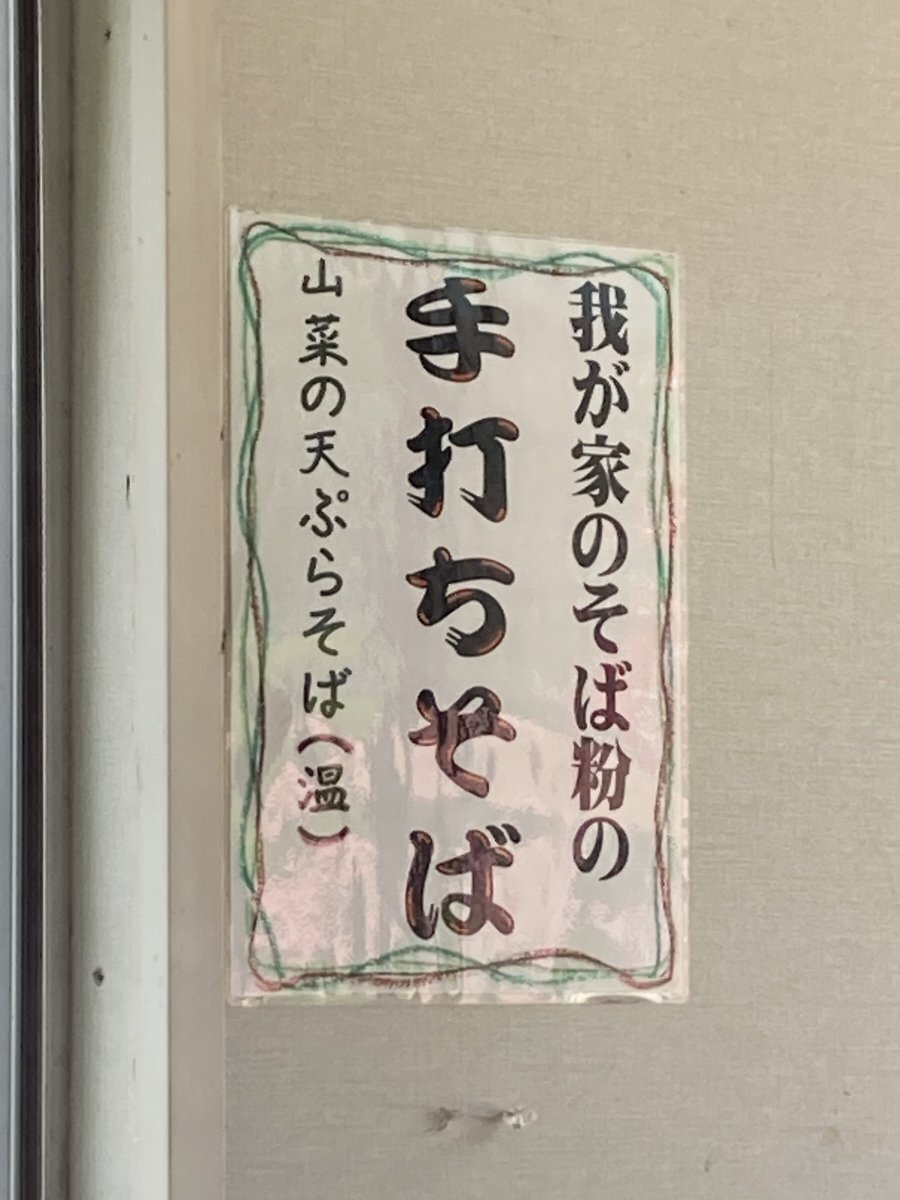 我が家のそば粉の
手打ちそば
山菜の天ぷらそば(温)